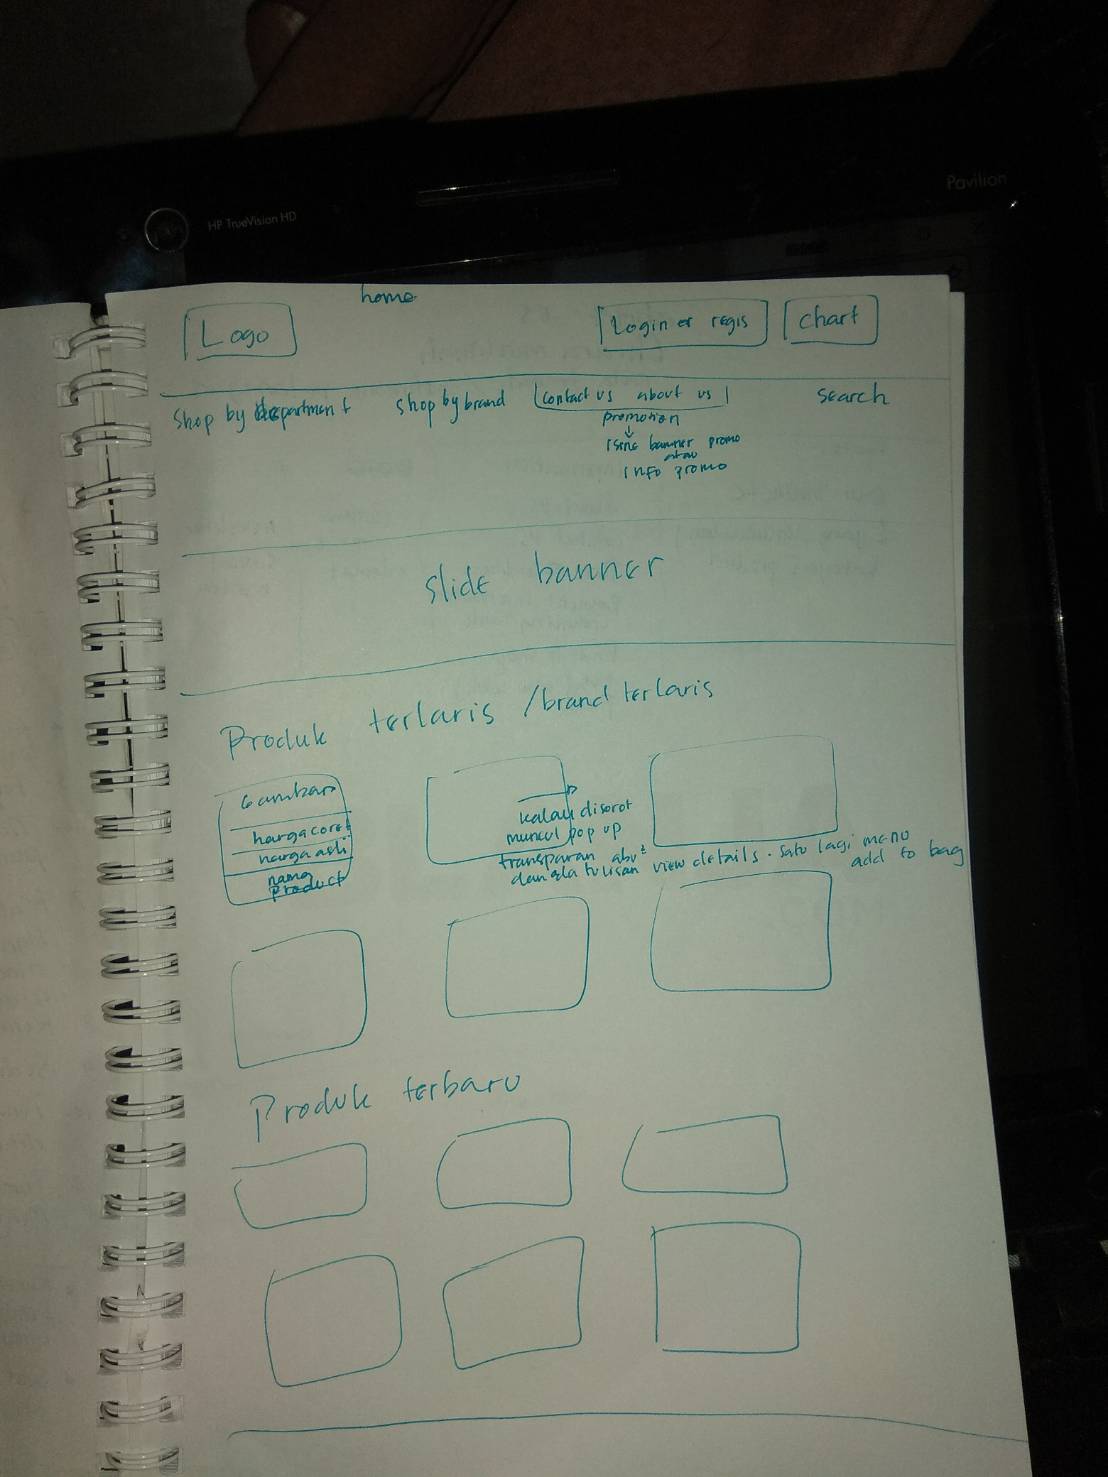 HP TrueVision HD
Pavilion
home
Logo
Login or regis
chart
Shop by department
shop by brand
contact us about us
search
promotion
isine banner promo
atau
info promo
slide banner
Produk terlaris / brand terlaris
Gambar
harga coret
harga asli
nama
product
kalau disorot
muncul pop up
transparan abu²
dan ada tulisan view details. satu lagi menu
add to bag
Produk terbaru